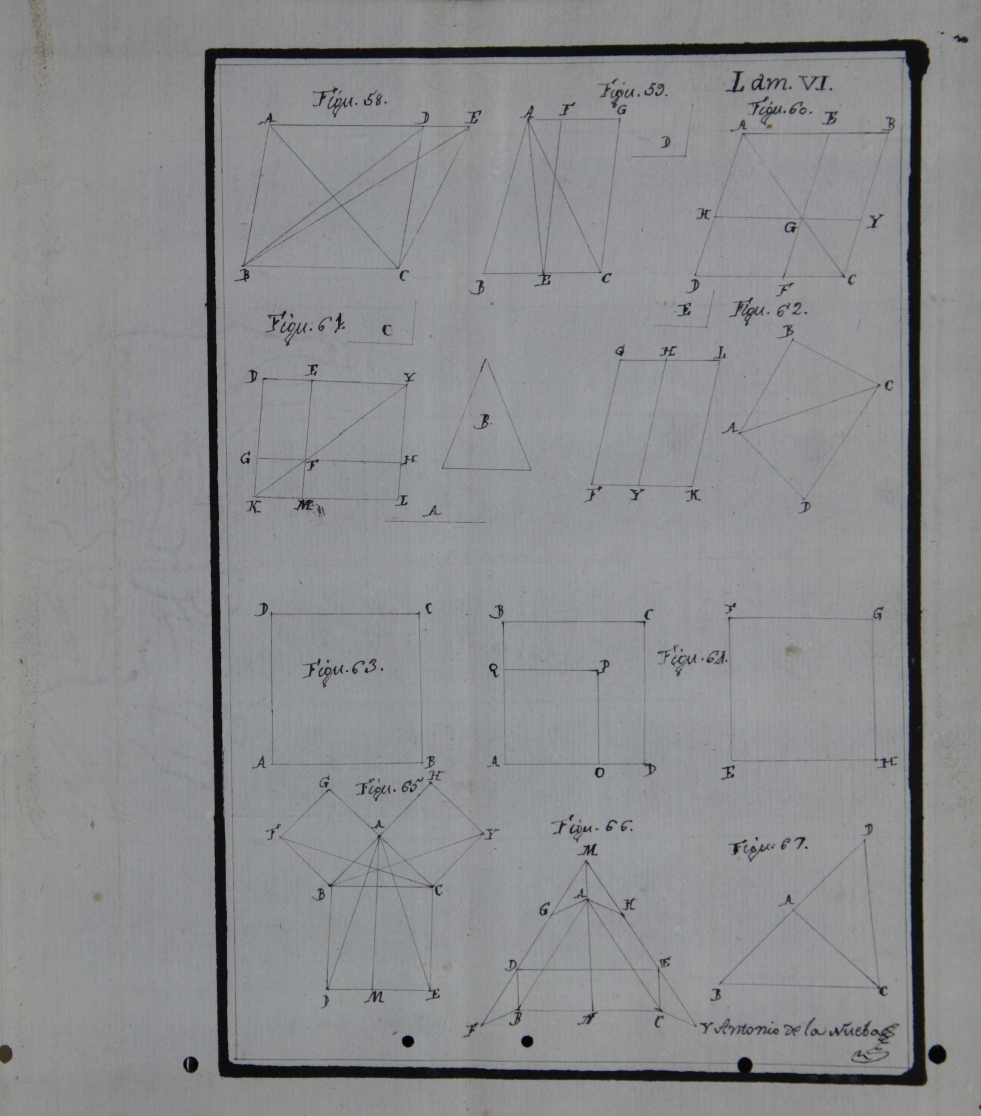 Lam. VI.
Figu. 58.
A D E
B C
Figu. 59.
A F G
D
B E C
Figu. 60.
A E B
H G Y
D F C
Figu. 61.
C
D E Y
G F H
K M L
B.
A
E
G H L
F Y K
Figu. 62.
B
C
A
D
Figu. 63.
D C
A B
B C
Q P
A O D
Figu. 64.
F G
E H
Figu. 65
G H
A
F Y
B C
D M E
Figu. 66.
M
A
G H
D E
B N C
F Y
Figu. 67.
D
A
B C
Antonio de la Nueba